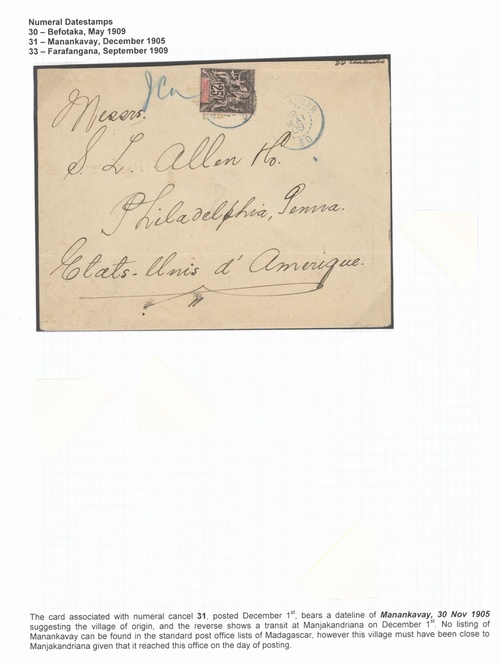 Numeral Datestamps
30 – Befotaka, May 1909
31 – Manankavay, December 1905
33 – Farafangana, September 1909
Messrs.
S. L. Allen Ho.
Philadelphia, Penna.
Etats-Unis d'Amerique.
25
The card associated with numeral cancel 31, posted December 1st, bears a dateline of Manankavay, 30 Nov 1905
suggesting the village of origin, and the reverse shows a transit at Manjakandriana on December 1st. No listing of
Manankavay can be found in the standard post office lists of Madagascar, however this village must have been close to
Manjakandriana given that it reached this office on the day of posting.